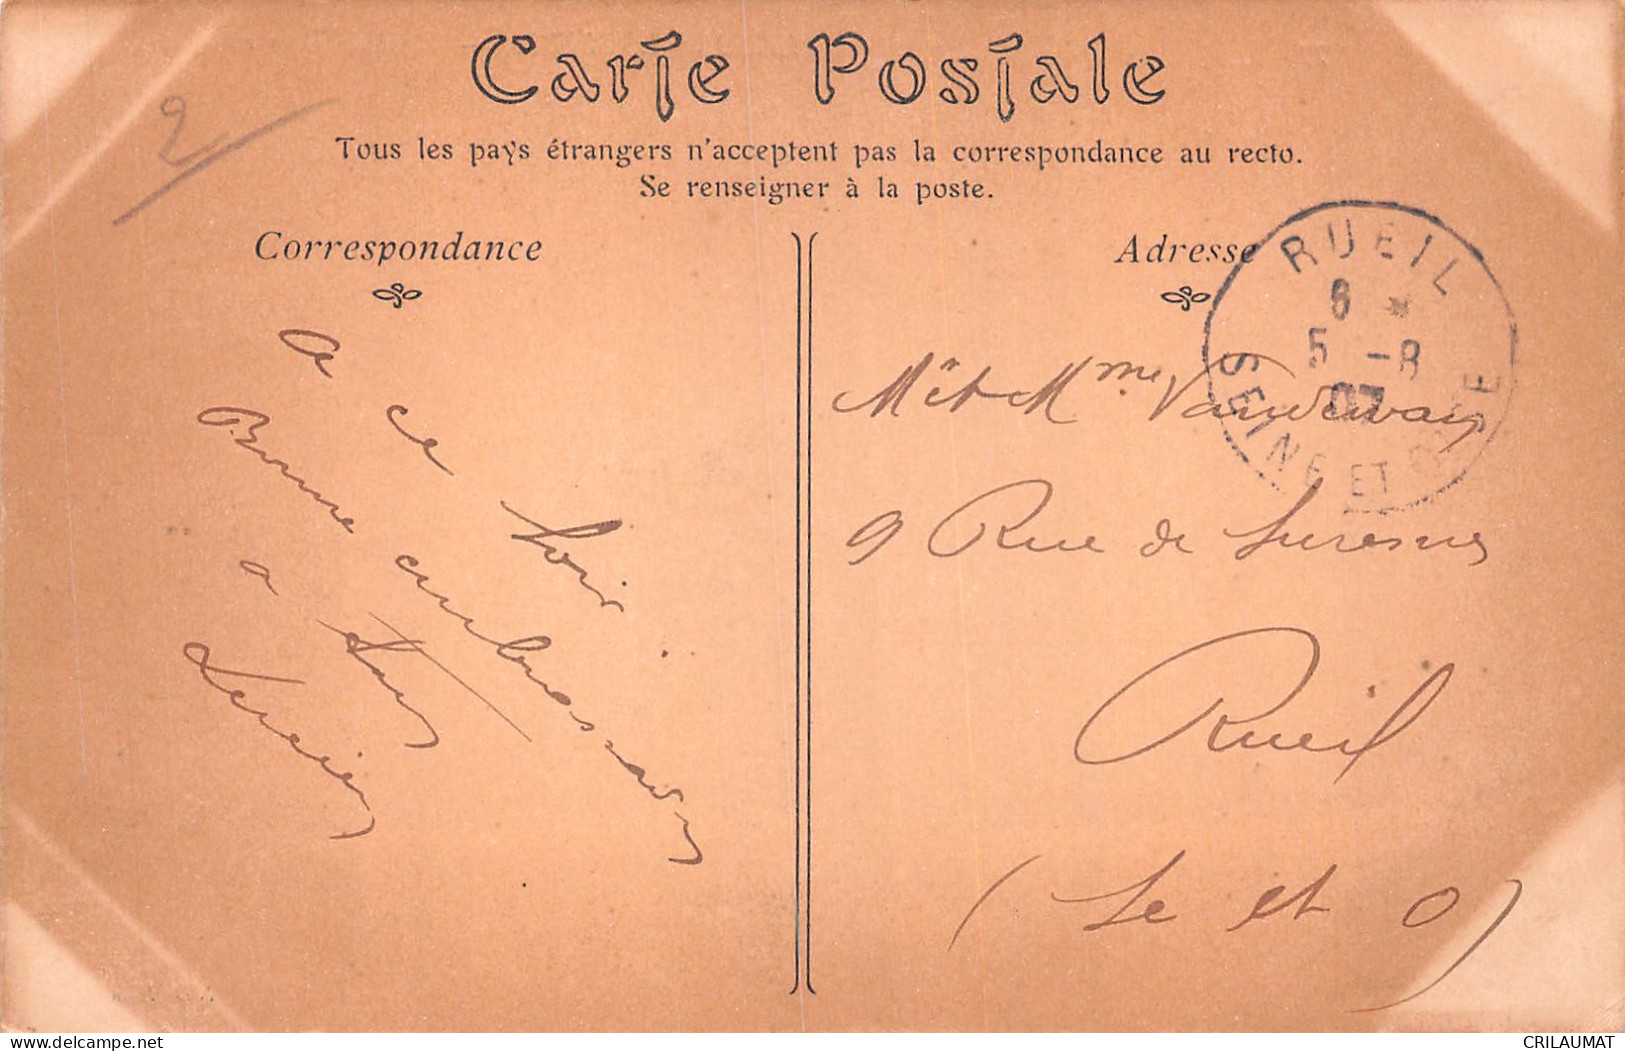 Carte Postale
2
Tous les pays étrangers n'acceptent pas la correspondance au recto.
Se renseigner à la poste.
Correspondance
Adresse
RUEIL
6 *
5 -8
07
SEINE ET OISE
a ce soir
Bonne embrassade
a tous
Lucien
Mr et Mme
9 Rue de Suresnes
Rueil
(Se et O)
CRILAUMAT